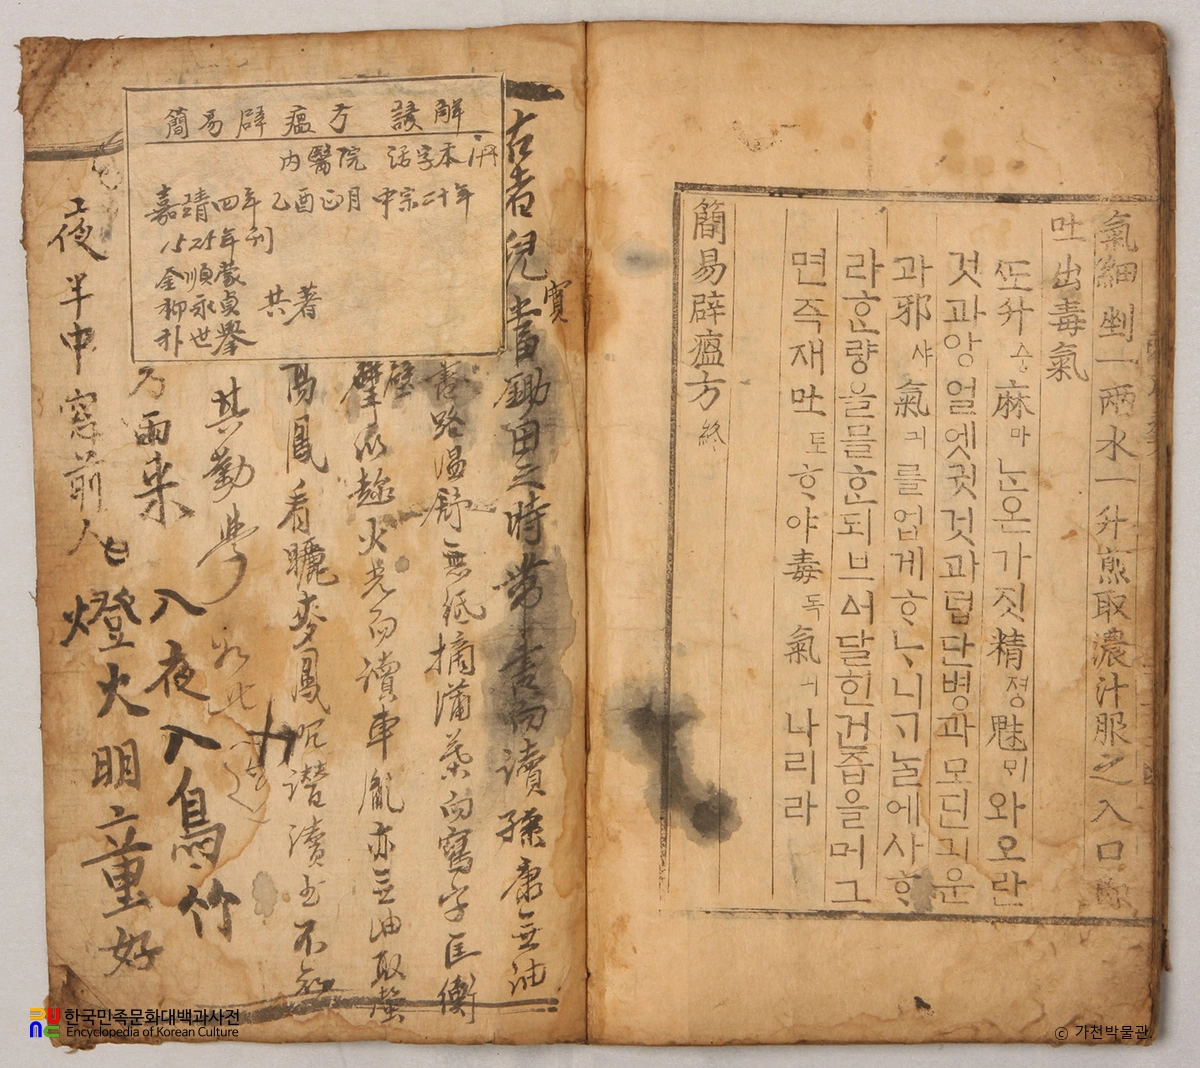 氣細剉一兩水一升煎取濃汁服之入口即
吐出毒氣
ᄯᅩ升승麻마ᄂᆞᆫ온가짓精졍魅ᄆᆡ와오란
것과앙얼엣귓것과덥단병과모딘긔운
과邪샤氣긔를업게ᄒᆞᄂᆞ니ᄀᆞ놀에사ᄒᆞ
라ᄒᆞᆫ량을믈ᄒᆞᆫ되브ᅀᅥ달힌건즙을머그
면즉재吐토ᄒᆞ야毒독氣긔나리라
簡易辟瘟方 終
簡易辟瘟方 諺解
內醫院 活字本
嘉靖四年 乙酉正月 中宗二十年
1525年刊
金順蒙
柳永貞 共著
朴世擧
古者兒寬鋤田之時帶書而讀孫康無油
路溫舒無紙摘蒲葉而寫字匡衡
壁 火光而讀車胤亦無油取螢
鳳看曬麥鳳 潛讀書不知
其勤學 如此
乃雨來
入夜入鳥竹
夜半中窓前人
燈火明童好
한국민족문화대백과사전
Encyclopedia of Korean Culture
ⓒ 가천박물관.